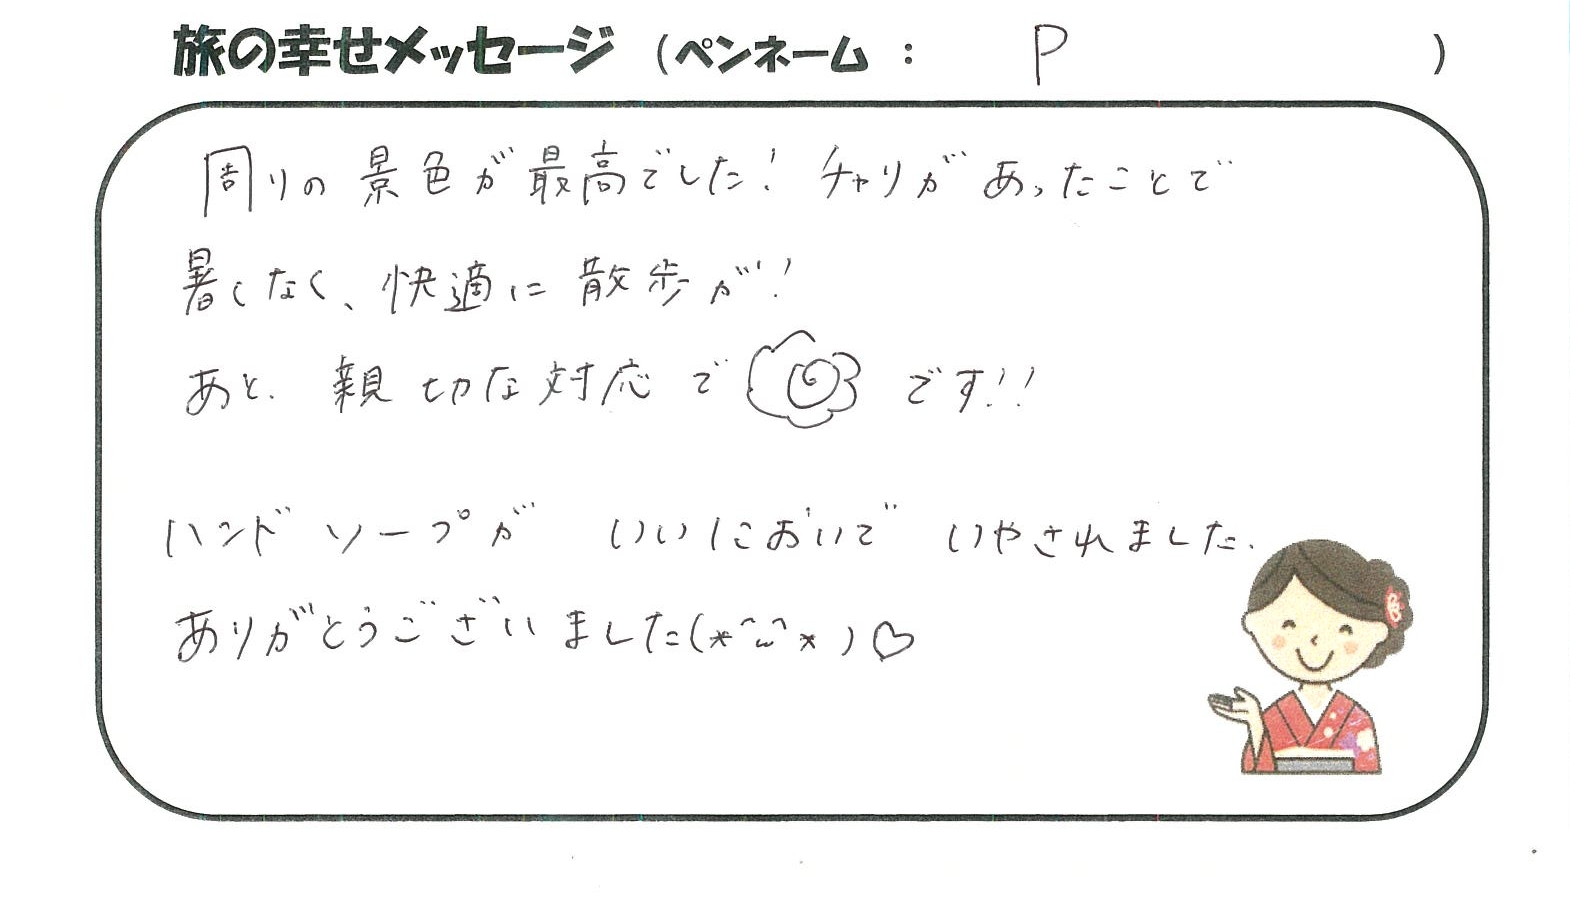 旅の幸せメッセージ (ペンネーム： P )
周りの景色が最高でした! チャリがあったことで
暑くなく、快適に散歩が!
あと、親切な対応で です!!
ハンドソープが いいにおいで いやされました.
ありがとうございました(*^ω^*)♡